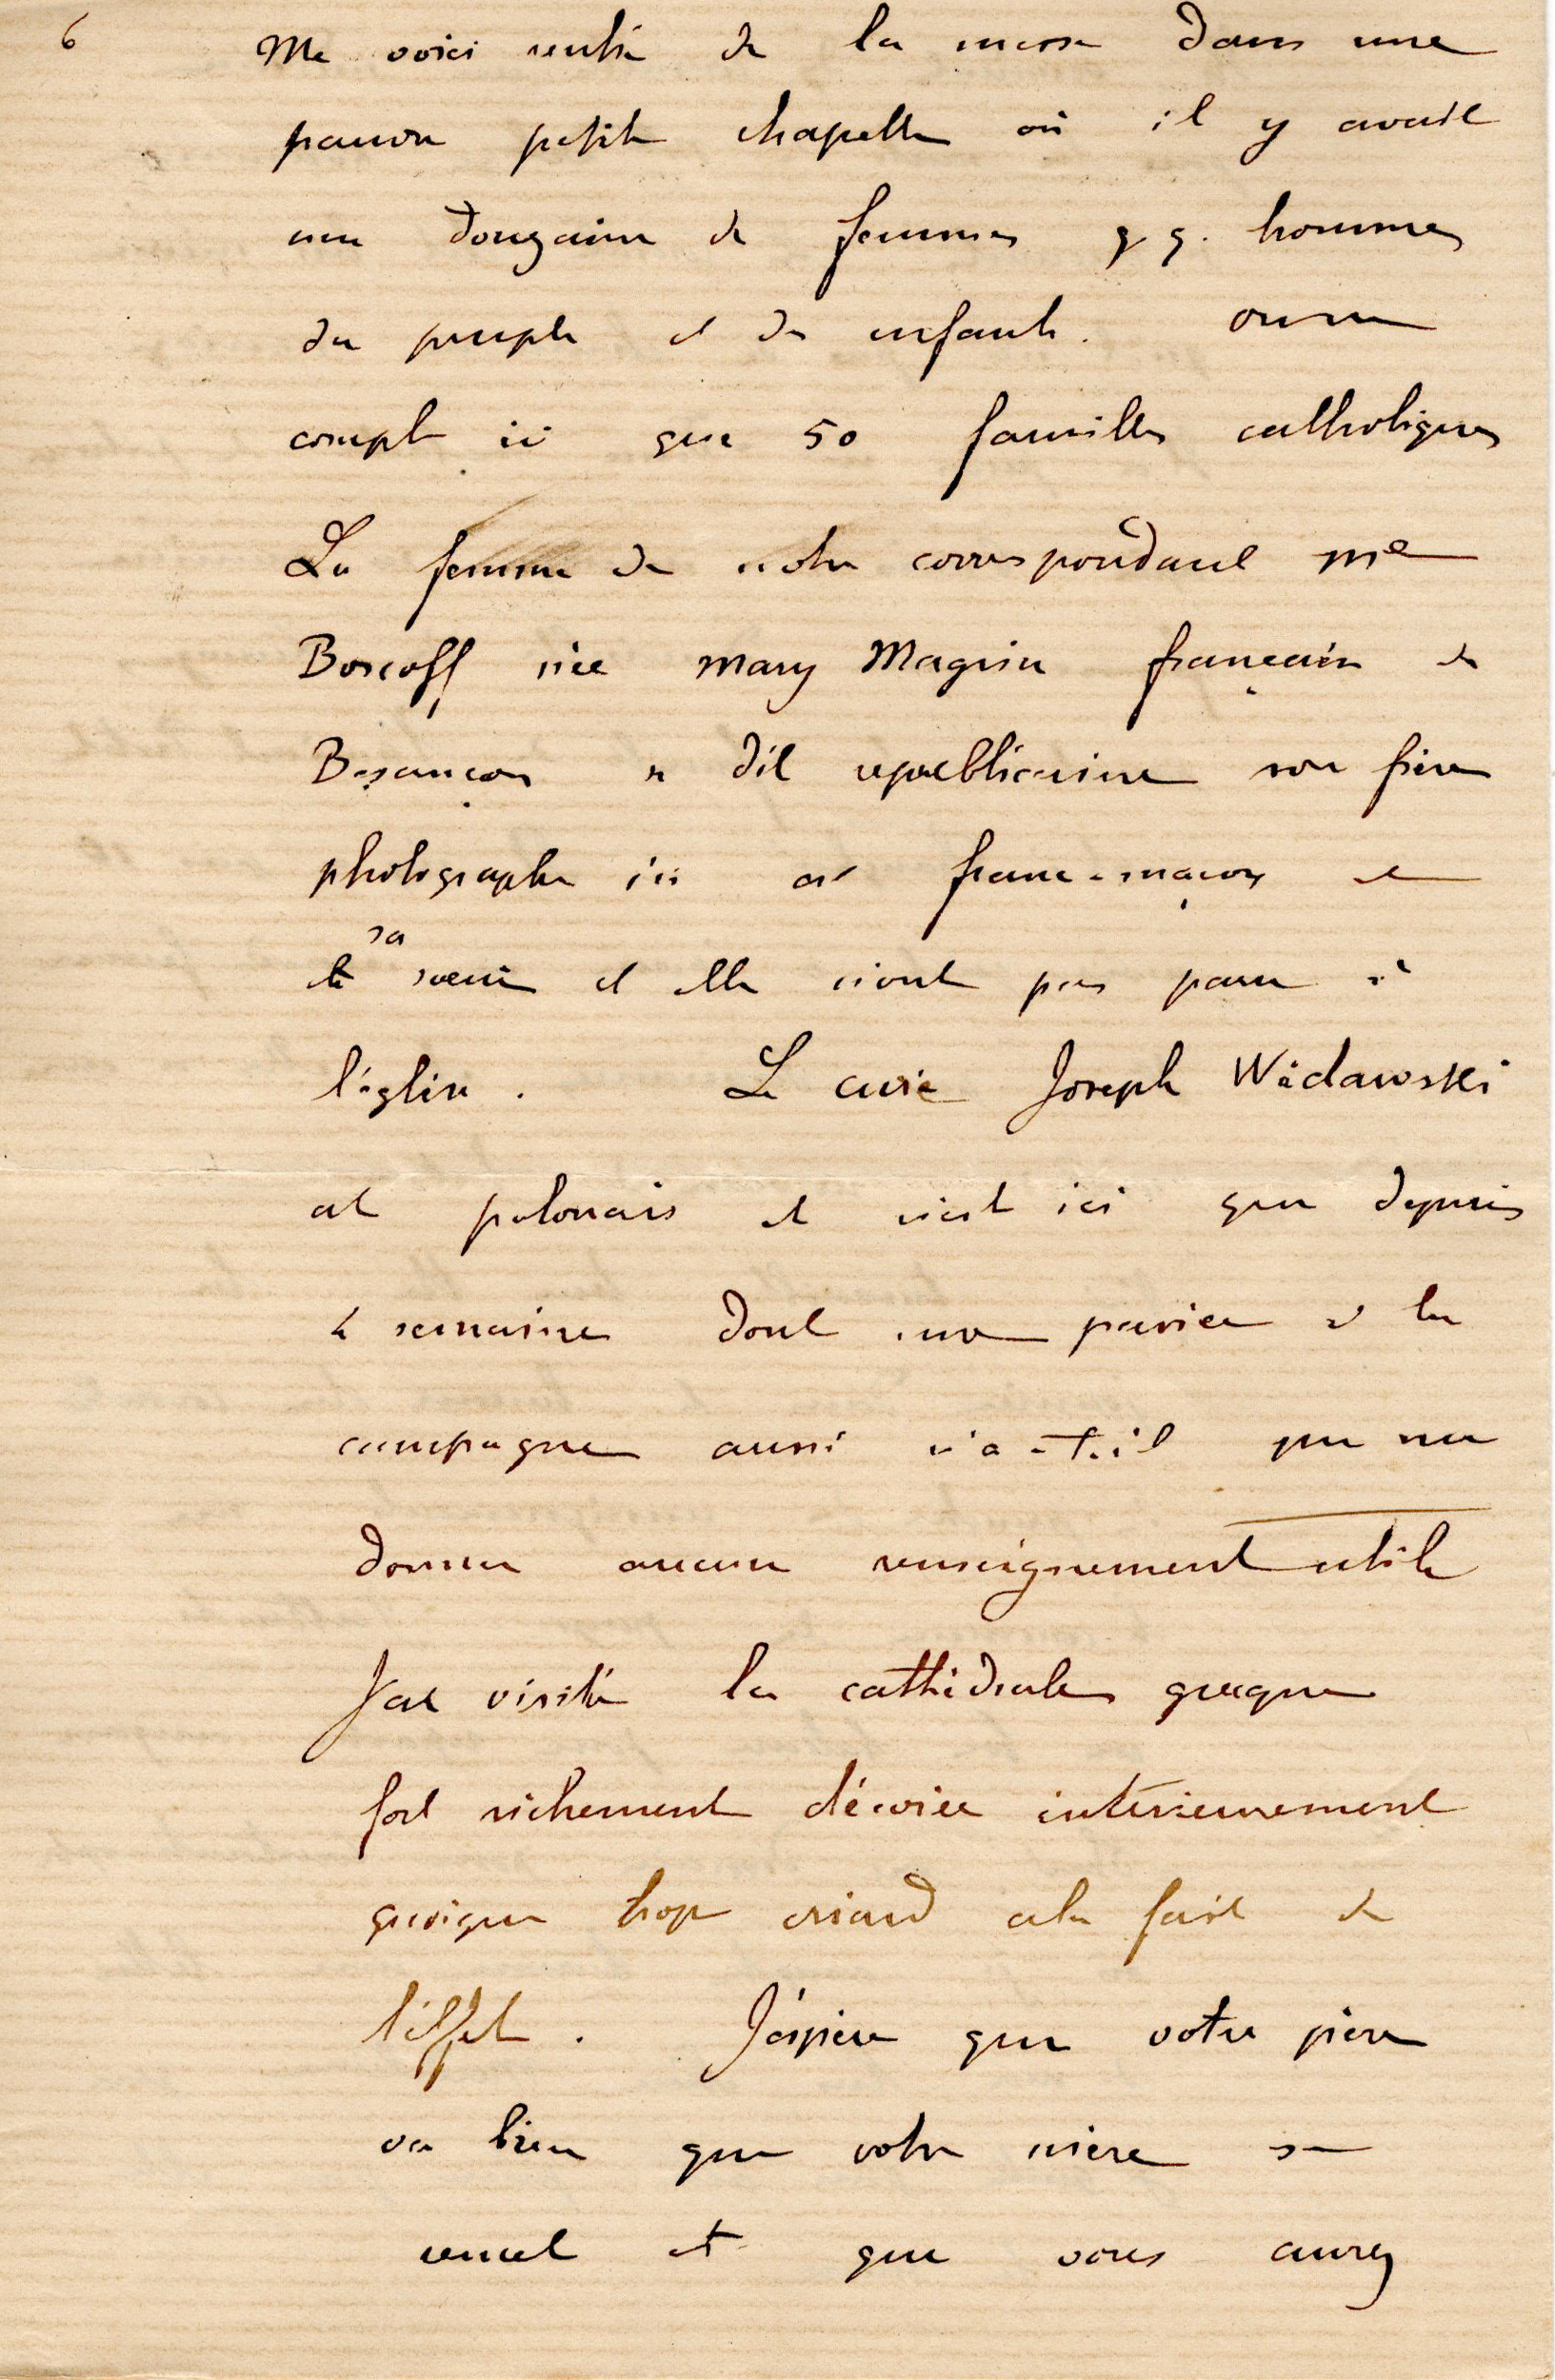 6
Me voici rentré de la messe dans une
pauvre petite chapelle où il y avait
une douzaine de femmes qq. hommes
du peuple et des enfants. on ne
compte ici que 50 familles catholiques
La femme de notre correspondant Me
Boscoff née Mary Magnin française de
Besançon se dit républicaine son frère
photographe ici est franc-maçon et
sa soeur et elle n'ont pas paru à
l'église. Le curé Joseph Widawski
est polonais et n'est ici que depuis
semaines dont une passée à la
campagne aussi n'a-t-il pu me
donner aucun renseignement utile
J'ai visité la cathédrale grecque
fort richement décorée intérieurement
quoique trop criard cela fait de
l'effet. J'espère que votre père
va bien que votre mère se
remet et que vous aurez